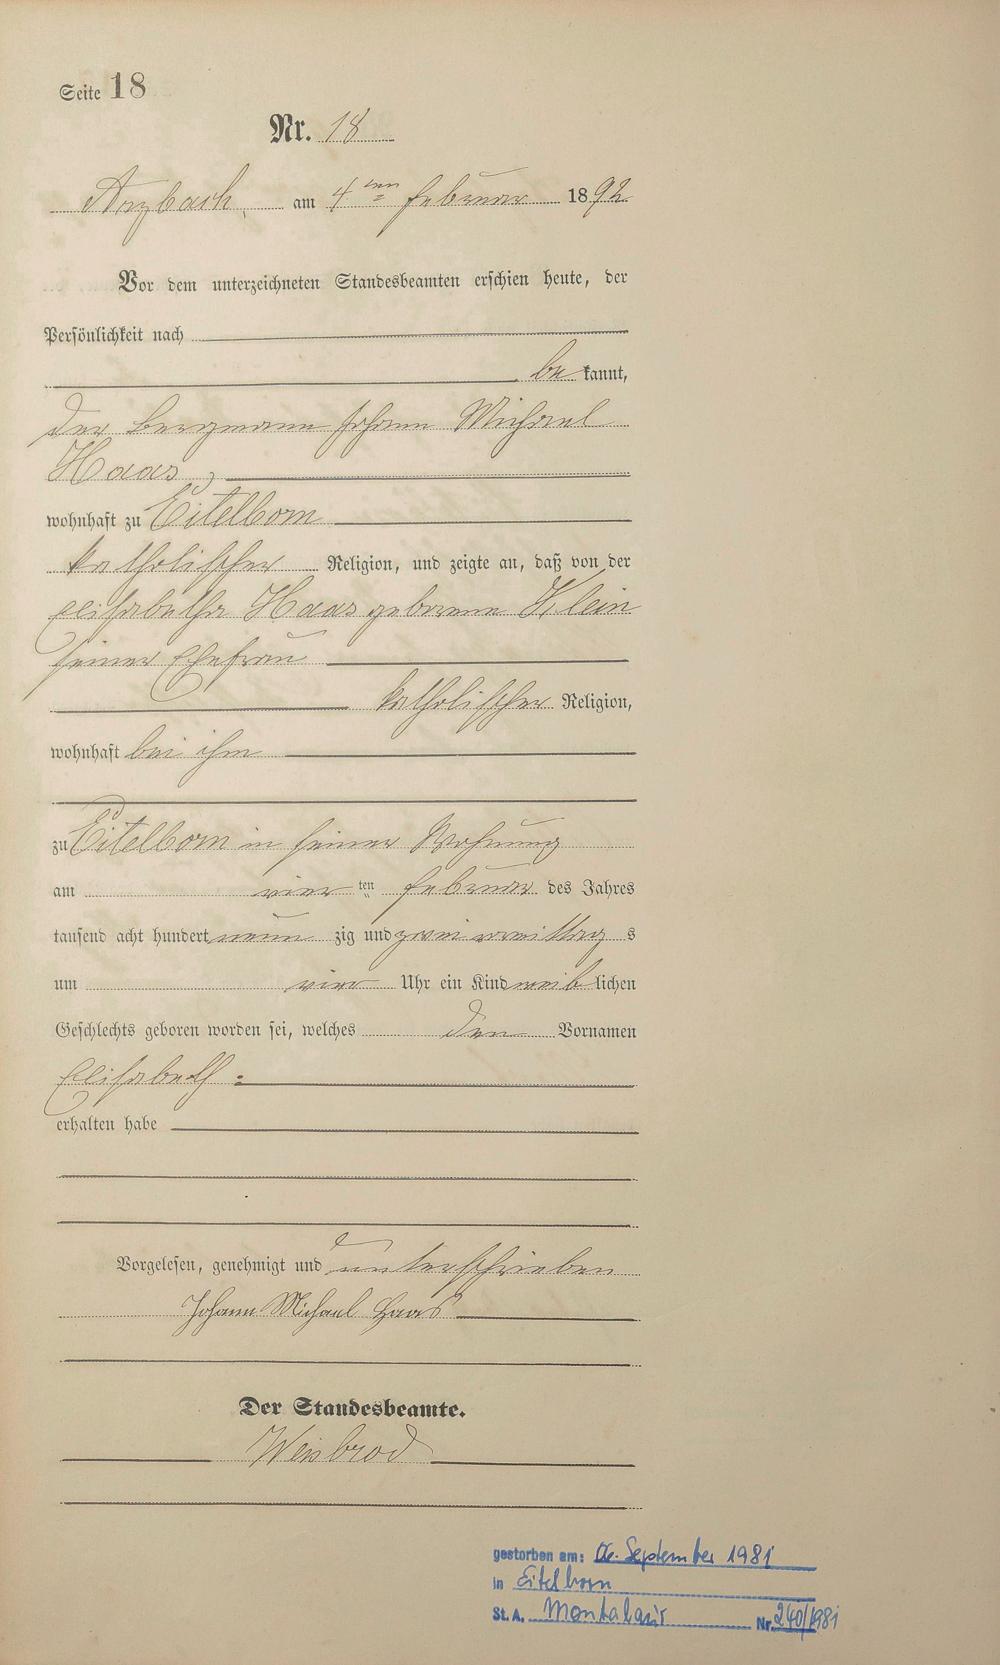 Seite 18
Nr. 18
Arzbach, am 4ten Februar 1892
Vor dem unterzeichneten Standesbeamten erschien heute, der
Persönlichkeit nach
be kannt,
der Bergmann Johann Michael
Haas,
wohnhaft zu Eitelborn
katholischer Religion, und zeigte an, daß von der
Elisabetha Haas geborene Klein
seiner Ehefrau
katholischer Religion,
wohnhaft bei ihm
zu Eitelborn in seiner Wohnung
am vier ten Februar des Jahres
tausend acht hundert neun zig und zwei vormittag s
um vier Uhr ein Kind weib lichen
Geschlechts geboren worden sei, welches den Vornamen
Elisabeth
erhalten habe
Vorgelesen, genehmigt und unterschrieben
Johann Michael Haas
Der Standesbeamte.
Weisbrod
gestorben am: 06. September 1981
in Eitelborn
St. A. Montabaur Nr. 240/1981